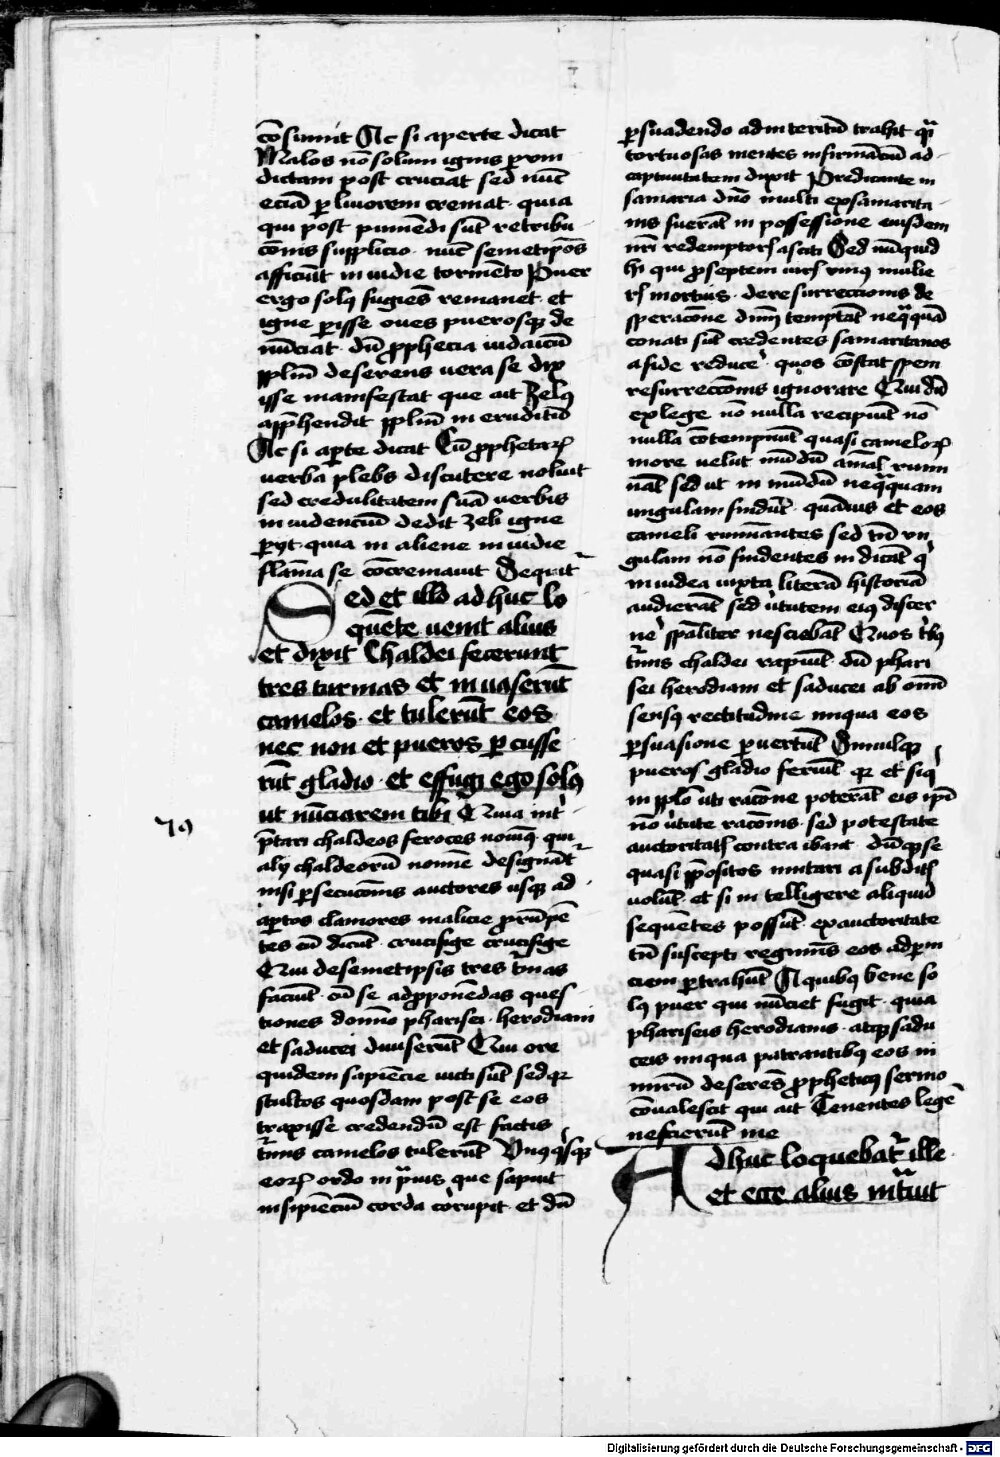 cōsumit Ac si aperte dicat
Malos nō solum ignis p̄om
dictam post cruciat sed nūc
eciā ꝑ liuorem cremat · quia
qui post puniēdi sūt retribu
cōnis supplicio · nūc semetipōs
afficiūt inuidie tormēto Puer
ergo solꝰ fugiēs remanet · et
igne ꝑisse oues puerosqꝫ de
nūciat · dū ꝓphecia iudaicū
pplm̄ deserens uera se dix
isse manifestat que ait Zelꝰ
apphendit pplm̄ ineruditū
Ac si aꝑte dicat Cū ꝓphetaꝝ
uerba plebs discutere noluit
sed credulitatem suā uerbis
inuidenciū dedit zeli igne
ꝑijt · quia in aliene inuidie
flāma se cōcremauit Sequit᷑
Sed et illo adhuc lo
quēte uenit alius
et dixit Chaldei fecerunt
tres turmas et inuaserūt
camelos · et tulerūt eos
nec non et pueros ꝑcusse
rūt gladio · et effugi ego solꝰ
ut nūciarem tibi Quia int̄
p̄tari chaldeos feroces nouimꝰ · qui
alij chaldeorū nomīe designāt᷑
nisi ꝑsecucōnis auctores usqꝫ ad
aꝑtos clamores malicie ꝓrūpē
tes cū dicūt · crucifige crucifige
Qui de semetipsis tres t᷑mas
faciūt · cū se ad ꝓponēdas ques
tiones domīo pharisei · herodiani
et saducei diuiserūt Qui ore
quidem sapiēcie uicti sūt sed qꝛ
stultos quosdam post se eos
traxisse credendū est factis
t᷑mis camelos tulerūt Vnꝰqꝫqꝫ
eoꝝ ordo in p̄uis que sapiut
insipiēciū corda corupit · et dū
ꝑsuadendo ad interitū trahit q̄i
tortuosas mentes infirmāciū ad
captiuitatem duxit Predicante in
samaria dn̄o multi ex samarita
nis fuerāt in possessione eiusdem
nr̄i redemptoris asciti Sed nūquid
hi qui ꝓ septem uiris vniꝰ mulie
ris mortuis · de resurreccionis de
speracōne dn̄m temptāt neq̄quā
conati sūt credentes samaritanos
a fide reducē · quos cōstat spem
resurreccōnis ignorare Qui dū
ex lege nō nulla recipiūt nō
nulla cōtempnūt quasi cameloꝝ
more uelut mūdū aīal rumi
nāt sed ut inmūdū neq̄quam
ungulam findūt · quāuis et eos
cameli ruminantes sed tn̄ vn
gulam nō findentes indicāt q̇
in iudea iuxta literā historiā
audierāt sed uirtutem eiꝰ discer
nē spāliter nesciebāt Quos tribꝰ
t᷑mis chaldei rapiūt · dū phari
sei herodiani et saducei ab omī
sensꝰ rectitudine iniqua eos
ꝑsuasione ꝑuertūt Simulqꝫ
pueros gladio feriūt · qꝛ et si q̇
in pplō uti racōne poterāt eis ip̄i
nō uirtute racōnis · sed potestate
auctoritatis contra ibant · dūqꝫ se
quasi p̄positos imitari a subditis
uolūt · et si intelligere aliquid
sequētes possūt · ex auctoritate
tn̄ suscepti regiminis eos ad ꝑni
ciem ꝑtrahūt A quibꝰ bene so
lꝰ puer qui nūciet fugit · quia
phariseis herodianis · atqꝫ sadu
ceis iniqua patrantibꝰ eos ni
mirū deserēs ꝓpheticꝰ sermo
cōualescit qui ait Tenentes legē
nescierūt me
Adhuc loquebat᷑ ille
et ecce alius int̄uit
Digitalisierung gefördert durch die Deutsche Forschungsgemeinschaft - DFG